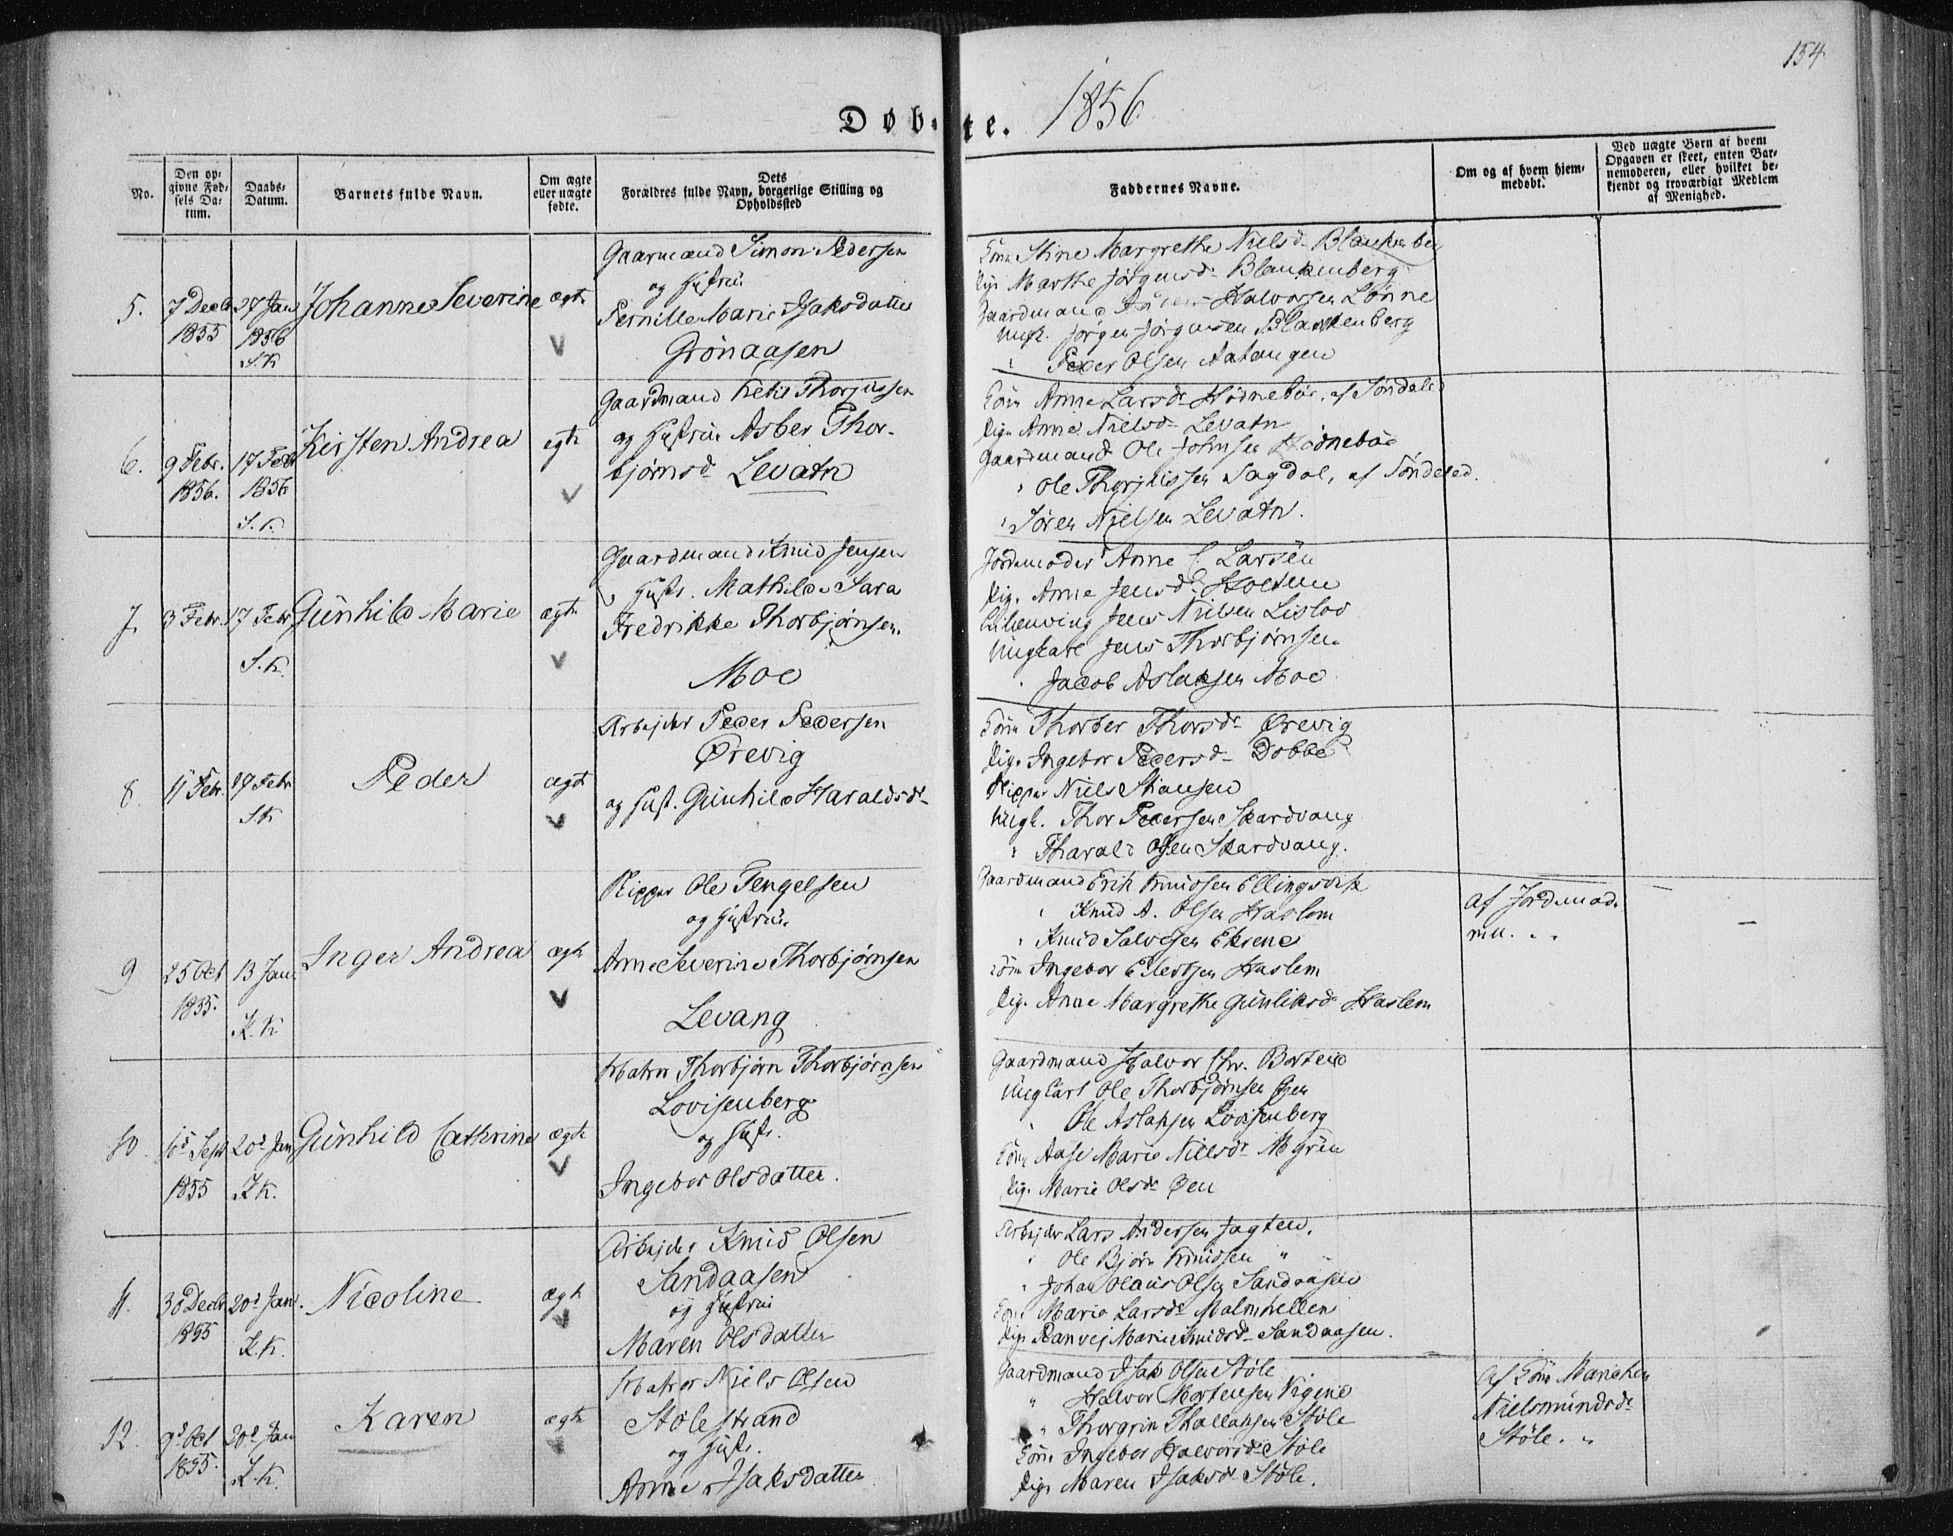 154
Døbte. 1856
No.
Den opgivne Fødsels Datum.
Daabs-Datum.
Barnets fulde Navn.
Om ægte eller uægte fødte.
Dets Forældres fulde Navn, borgerlige Stilling og Opholdssted
Faddernes Navne.
Om og af hvem hjemmedøbt.
Ved uægte Børn af hvem Opgaven er skeet, enten Barnemoderen, eller hvilket bekjendt og troværdigt Medlem af Menighed.
5.
7 Decb 1855
27 Jan 1856
S.K
Johanne Severine
ægte
Gaarmand Simon Pedersen
og Hustru
Pernille Marie Isaksdatter
Grønaasen
Kone Stine Margrethe Nielsd. Blankenberg
Pige Marthe Jørgensd. Blankenberg
Gaardmand Halvorsen Lønne
Ungk. Jørgen Jørgensen Blankenberg
" Peder Olsen Aatangen
6.
9 Febr. 1856.
17 Febr 1856
S.K.
Kirsten Andrea
egte
Gaardmand Ketil Thorjussen
og Hustrue Asber Thor-
bjørnsd. Levatn
Kone Anne Larsdr Hødnebøe, af Søndeled
Pige Anne Nielsd. Levatn
Gaardmand Ole Johnsen Hødnebøe
" Ole Thorjussen Sagdal, af Søndeled.
" Søren Nielsen Levatn.
7.
3 Febr.
17 Febr
S.K.
Gunhild Marie
ægte
Gaardmand Knud Jensen
Hustr. Mathilde Sara
Fredrikke Thorbjørnsen.
Moe
Jordemoder Anne C Larsen
Pige Anne Jensdr Holtene
Jens Nielsen Lislöv
Ungkarl Jens Thorbjørnsen
" Jacob Aslaksen Moe
8.
11 Febr.
27 Febr
SK
Peder
ægte
Arbejder Peder Pedersen
Ørevig
og Hust. Gunhild Haraldsdr
Kone Thorber Thorsdr Ørevig
Pige Ingebor Pedersd. Dobbe
Skipper Niels Stiansen
Ungk. Thor Pedersen Skardvang
" Tharald Olsen Skardvang.
9
25 Oct 1855.
13 Jan.
K.K
Inger Andrea
ægte
Skipper Ole Tengelsen
og Hustrue
Anne Severine Thorbjørnsen
Levang
Gaardmand Erik Knudsen Ellingsvik
" Knud A. Olsen Haslem
" Knud Salvesen Ekrene
Kone Ingebor Ellefsen Haslem
Pige Anne Margrethe Gunliksdr Haslem
af Jordemoderen. "
10.
20d Jan
1855
K.K.
Gunhild Cathrine
ægte
Matros Thorbjørn Thorbjørnsen
Lovisenberg
og Hustr.
Ingebor Olsdatter.
Gaardmand Halvor Chr. Bortene
Ungkarl Ole Thorbjørnsen Øen
" Ole Aslaksen Lovisenberg
Kone Aase Marie Nielsdr Myren
Pige Marie Olsdr Øen
11.
30 Decb 1855
20d Jan.
K.K.
Nicoline
ægte
Arbejder Knud Olsen
Sandaasen
og Hustrue
Maren Olsdatter
Arbejder Lars Andersen Jagten.
" Ole Bjørn Knudsen "
" Johan Olaus Olsen Sandaasen
Kone Marie Larsdr Malmhellen
Pige Ranvej Marie Knudsd. Sandaasen.
12.
9d Oct 1855.
20d Jan
K.K.
Karen
ægte
Matros Niels Olsen
Stølestrand
og Hustr.
Anne Isaksdatter
Gaardmand Isak Olsen Støle
" Halvor Mortensen Vigene
" Thorgrim Thallaksen Støle
Kone Ingebor Halvorsdr Støle
Pige Maren Isaksdr Støle.
af Kone Mariken
Nielsmundsdr
Støle. "